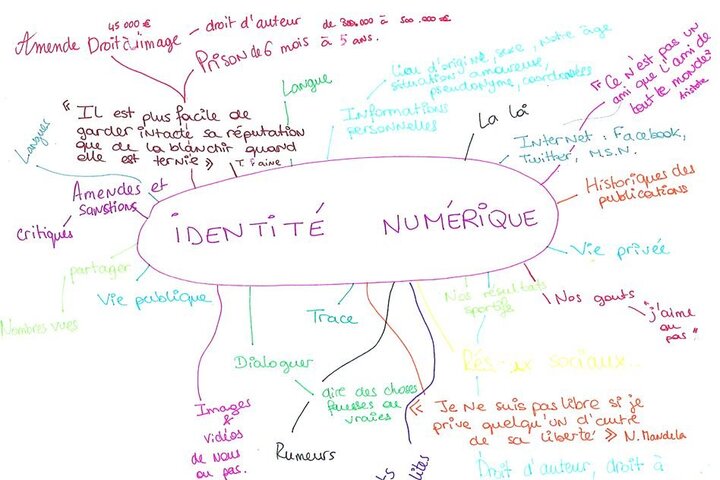 45 000 €
Amende Droit à l'image - droit d'auteur de 300.000 à 500.000 €
Prison de 6 mois à 5 ans.
Langue
Lieu d'origine, sexe, notre âge
situation amoureuse,
pseudonyme, coordonnées
Informations
personnelles
« Ce n'est pas un
ami que l'ami de
tout le monde »
Aristote
« Il est plus facile de
garder intacte sa réputation
que de la blanchir quand
elle est ternie »
La là
Internet : Facebook,
Twitter, M.S.N.
Langues
Amendes et
sanctions
critiqués
Historiques des
publications
IDENTITÉ NUMÉRIQUE
partager
Vie publique
Nombres vues
Vie privée
Nos résultats
sportifs
Nos gouts
"j'aime
ou
pas"
Trace
Dialoguer
dire des choses
fausses ou
vraies
Rumeurs
Images
&
vidéos
de nous
ou pas.
Rés-ux sociaux...
« Je ne suis pas libre si je
prive quelqu'un d'autre
de sa liberté » N. Mandela
Droit d'auteur, droit à